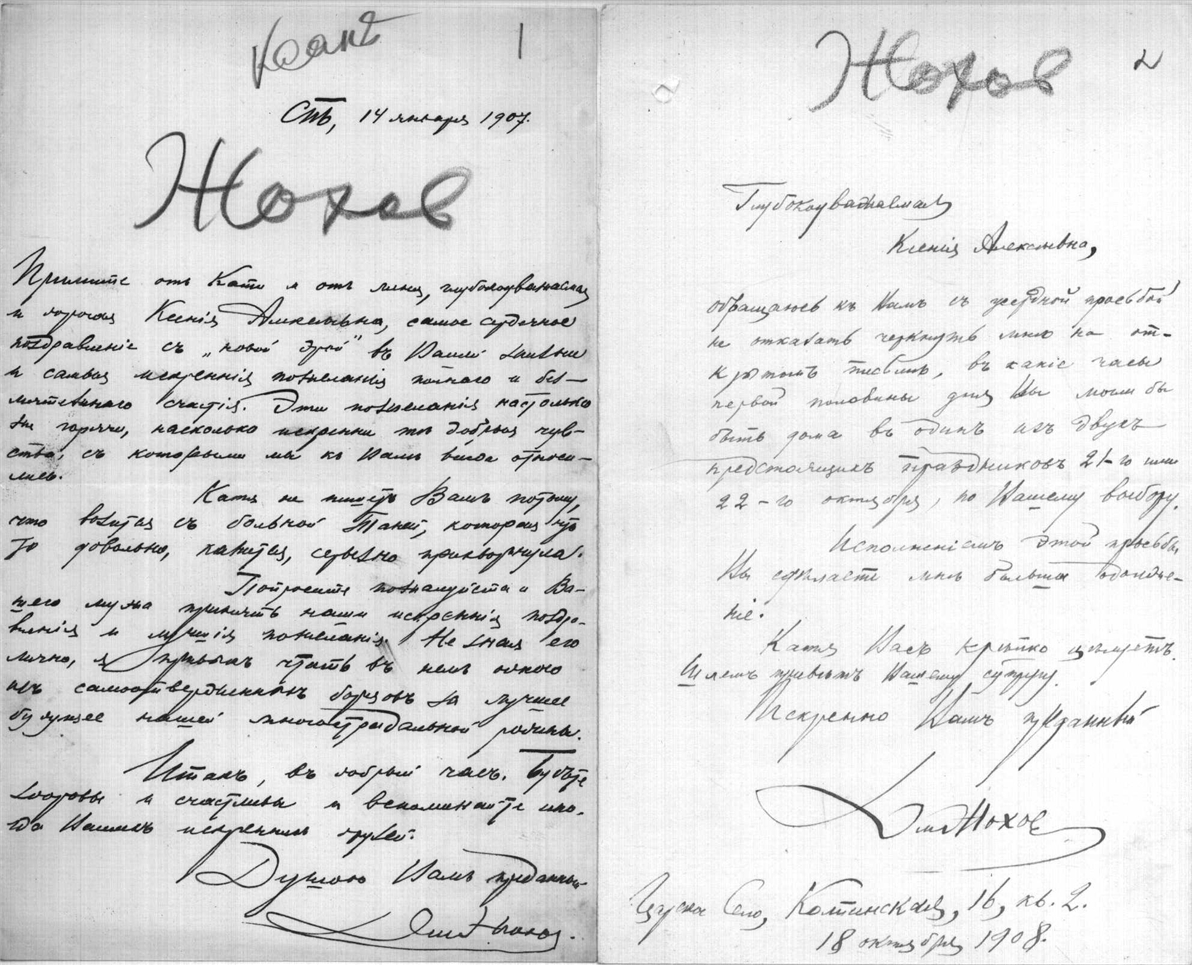 1
СПБ, 14 января 1907.
Жохов
Примите отъ Кати и отъ меня, глубокоуважаемая
и дорогая Ксенія Алексѣевна, самое сердечное
поздравленіе съ „новой эрой" въ Вашей жизни
и самыя искреннія пожеланія полнаго и без-
мятежнаго счастія. Эти пожеланія настолько
же горячи, насколько искренни тѣ добрыя чув-
ства, съ которыми мы къ Вамъ всегда относи-
лись.
Катя не пишетъ Вамъ потому,
что возится съ больной Таней, которая что-
то довольно, кажется, серьезно прихворнула.
Попросите пожалуйста и Ва-
шего мужа принять наши искреннія поздра-
вленія и лучшія пожеланія. Не зная его
лично, я привыкъ чтить въ немъ одного
изъ самоотверженныхъ борцовъ за лучшее
будущее нашей многострадальной родины.
Итакъ, въ добрый часъ. Будьте
здоровы и счастливы и вспоминайте ино-
гда Вашихъ искреннихъ друзей.
Душою Вамъ преданный
Дм Жохов.
Жохов
2
Глубокоуважаемая
Ксенія Алексѣевна,
обращаюсь къ Вамъ съ усердной просьбой
не отказать черкнуть мнѣ на от-
крытомъ письмѣ, въ какіе часы
первой половины дня Вы могли бы
быть дома въ одинъ изъ двухъ
предстоящихъ праздниковъ 21-го или
22-го октября, по Вашему выбору.
Исполненіемъ этой просьбы
Вы сдѣлаете мнѣ большое одолже-
ніе.
Катя Васъ крѣпко цѣлуетъ.
Шлемъ привѣтъ Вашему супругу.
Искренно Вамъ преданный
Дм Жохов
Царское Село, Колпинская, 16, кв. 2.
18 октября 1908.